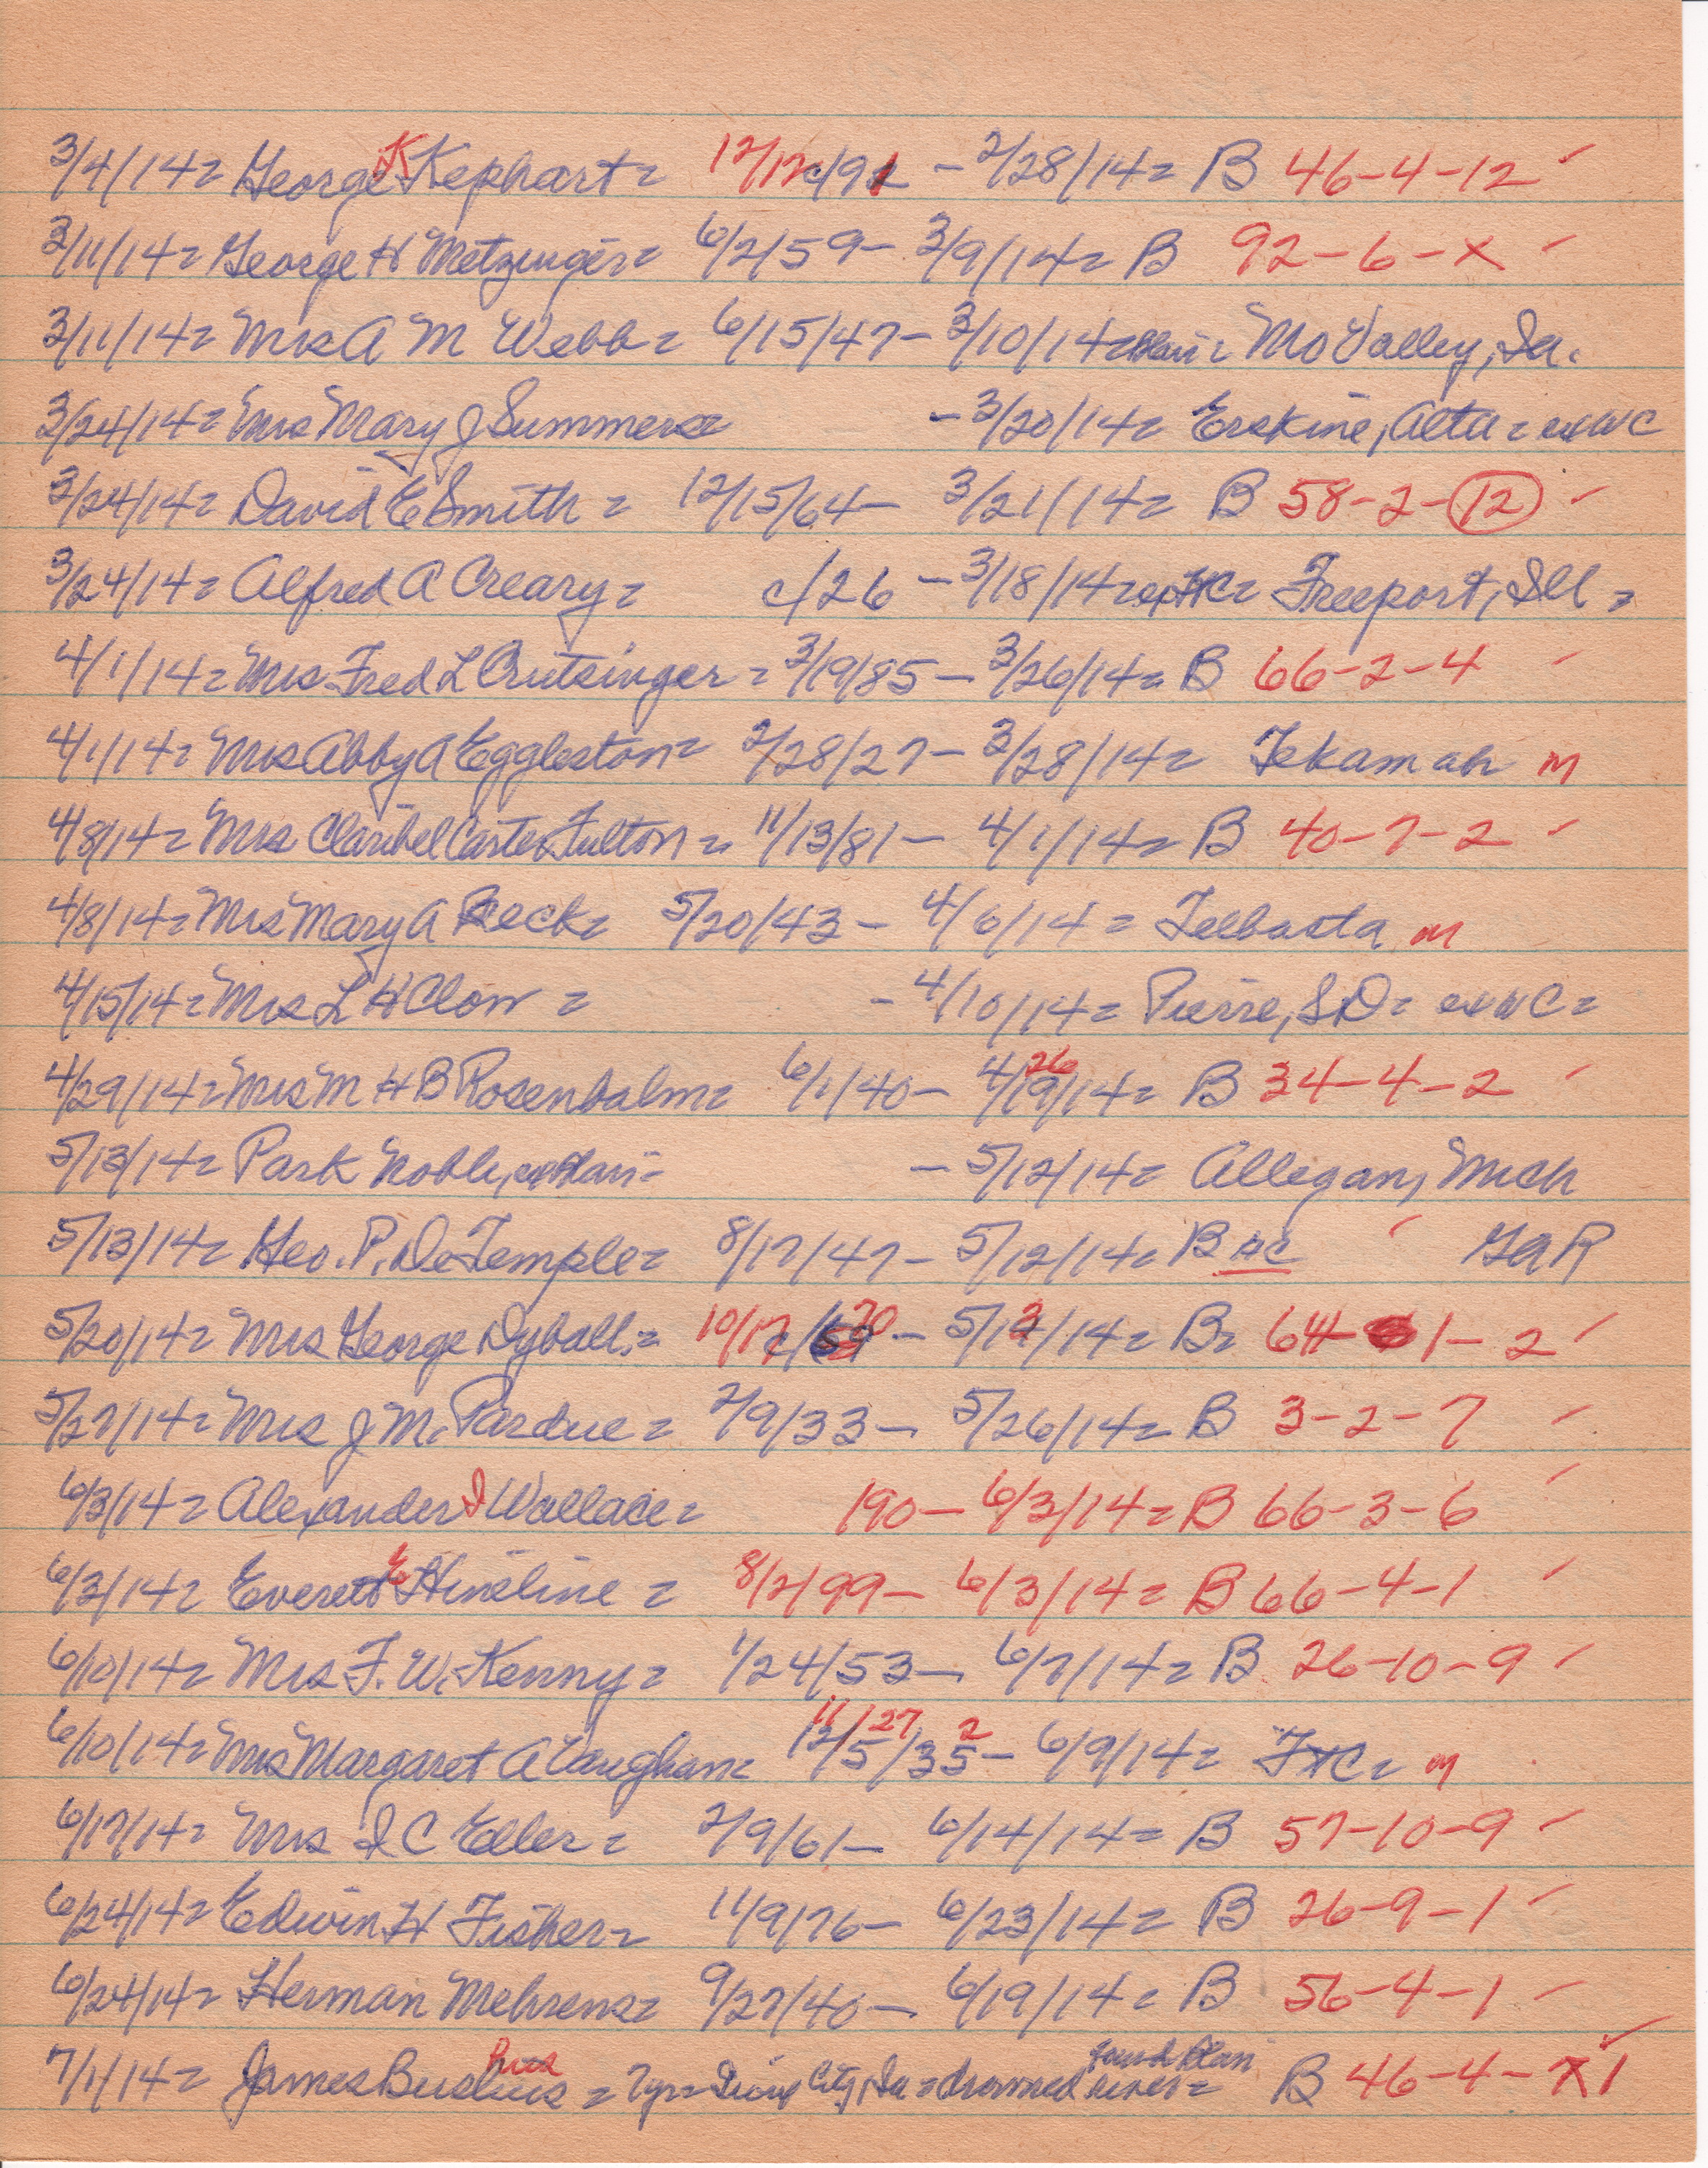 3/4/14= George K Kephart= 12/12/91 - 2/28/14= B 46-4-12 ✓
3/11/14= George H Metzinger= 6/2/59- 3/9/14= B 92-6-x ✓
3/11/14= Mrs A M Webb= 6/15/47- 3/10/14= Blair= Mo Valley, Ia.
3/24/14= Mrs Mary J Summers= - 3/20/14= Erskine, Alta= exWC
3/24/14= David E Smith= 12/15/64- 3/21/14= B 58-2-12 ✓
3/24/14= Alfred A Creary= c/26 - 3/18/14= exHC= Freeport, Ill=
4/1/14= Mrs Fred L Crutsinger= 3/19/85- 3/26/14= B 66-2-4 ✓
4/1/14= Mrs Abby A Eggleston= 2/28/27- 3/28/14= Tekamah m
4/8/14= Mrs Claribel Carter Fulton= 11/13/81- 4/1/14= B 40-7-2 ✓
4/8/14= Mrs Mary A Reck= 5/20/43- 4/6/14= Telbasta m
4/15/14= Mrs L H Clow= - 4/10/14= Pierre, SD= exWC=
4/29/14= Mrs M H B Rosenbalm= 6/1/40- 4/19/14= 26 B 34-4-2 ✓
5/13/14= Park Noble, exBlair= - 5/12/14= Allegan, Mich
5/13/14= Geo. P. DeTemple= 8/17/47- 5/12/14= B HC ✓ GAR
5/20/14= Mrs George Dyball.= 10/17/70 - 5/12/14= B= 64-1-2 ✓
5/27/14= Mrs J M. Pardue= 2/9/33- 5/26/14= B 3-2-7 ✓
6/3/14= Alexander I Wallace= 190- 6/3/14= B 66-3-6 ✓
6/3/14= Everett E Hineline= 8/2/99- 6/3/14= B 66-4-1 ✓
6/10/14= Mrs F. W. Kenny= 1/24/53- 6/7/14= B 26-10-9 ✓
11/27 2
6/10/14= Mrs Margaret A Vaughan= 12/5/35- 6/9/14= FtC= m
6/17/14= Mrs I C Eller= 2/9/61- 6/14/14= B 57-10-9 ✓
6/24/14= Edwin H Fisher= 11/9/76- 6/23/14= B 26-9-1 ✓
6/24/14= Herman Mehrens= 9/27/40- 6/19/14= B 56-4-1 ✓
7/1/14= James Bushus= 7y= Sioux City, Ia= drowned river= found Blair B 46-4-x1 ✓